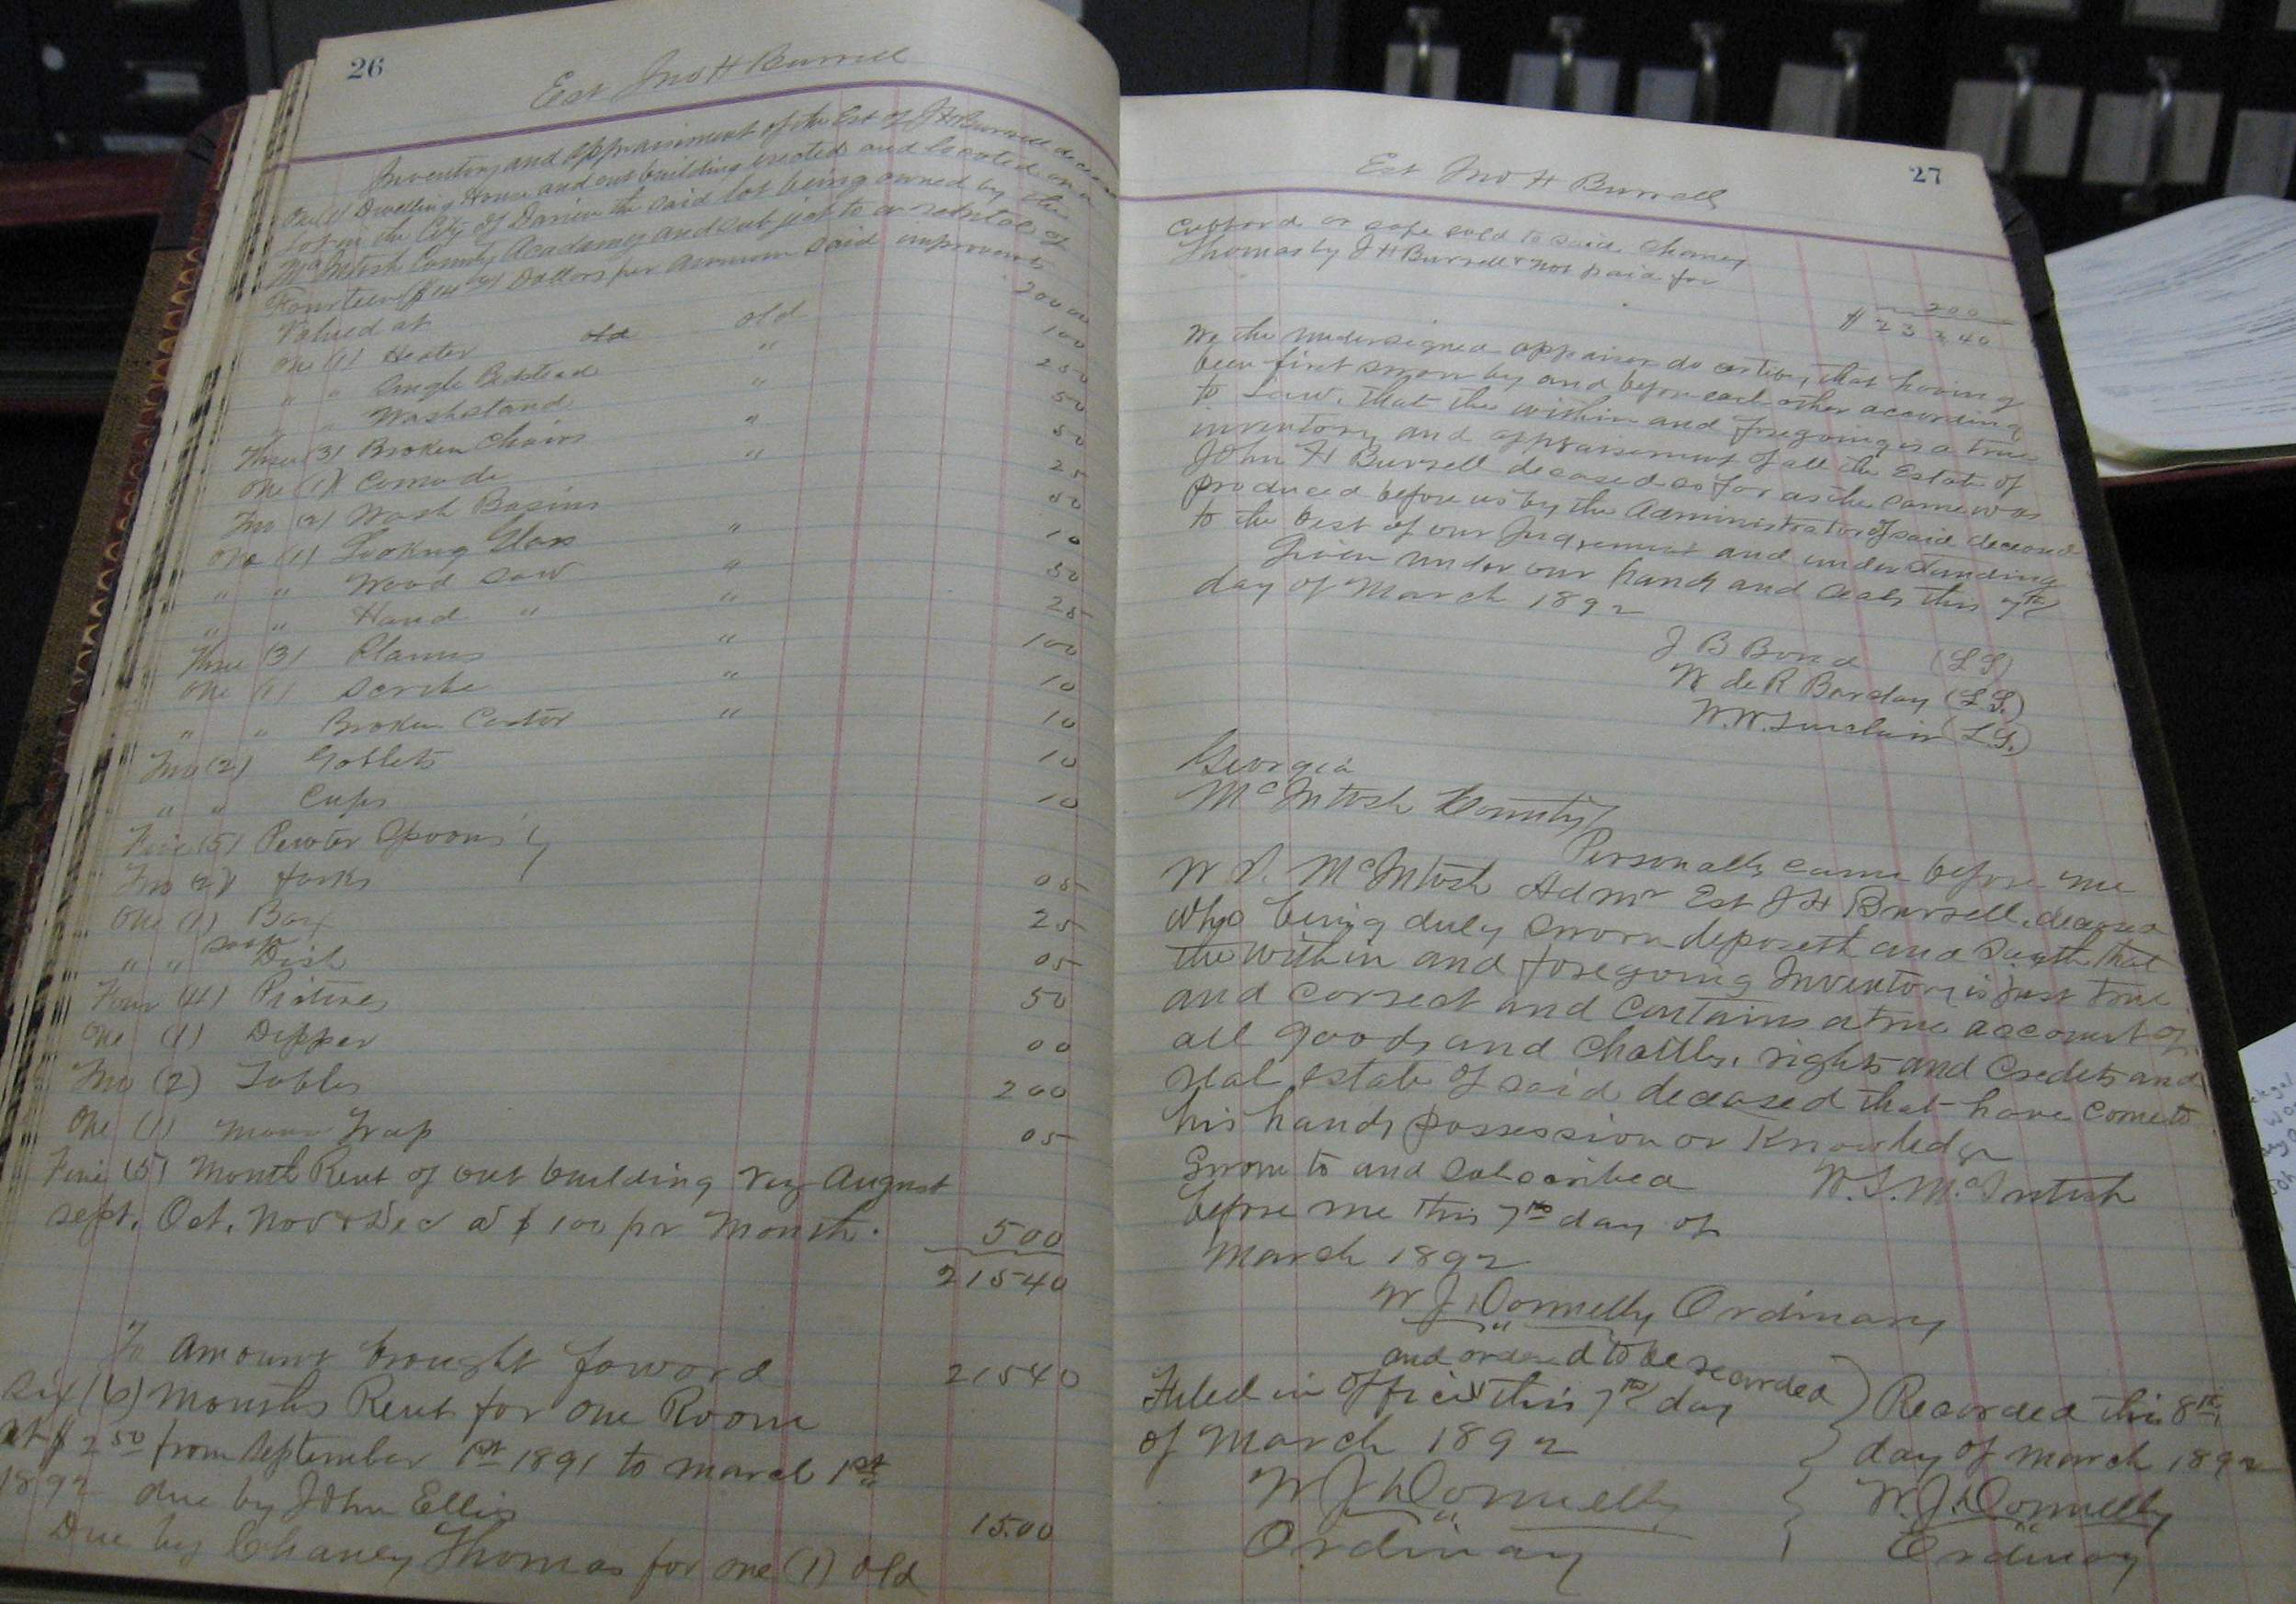 26
Est Jno H Burrell
Inventory and appraisement of the Est of J H Burrell deceased
One (1) Dwelling House and out building erected and located on a
Lot in the City of Darien the said lot being owned by the
McIntosh County Academy and subject to a rental of
Fourteen Dollars per annum said improvements
Valued at 200 00
One (1) Heater old old 100
" " Single Bedstead " 250
" " Washstand " 50
Three (3) Broken Chairs " 50
One (1) Comode " 25
Two (2) Wash Basins 50
One (1) Looking Glass " 10
" " Wood Saw " 50
" " Hand " " 25
Three (3) Planes " 100
One (1) Scribe " 10
" " Broken Castor " 10
Two (2) Goblets 10
" " Cups 10
Five (5) Pewter Spoons }
Two (2) forks 05
One (1) Box 25
" " soap Dish 05
Four (4) Pictures 50
One (1) Dipper 00
Two (2) Tables 200
One (1) Trap 05
Five (5) Month Rent of out building viz August
Sept. Oct. Nov & Dec @ $ 100 pr Month. 500
21540
To amount brought foward 21540
Six (6) Months Rent for One Room
at $ 2 50 from September 1st 1891 to March 1st
1892 due by John Ellis 15.00
Due by Chaney Thomas for one (1) old
27
Est Jno H Burrell
Cubbord or safe sold to said Chaney
Thomas by J H Burrell & not paid for 200
$ 23 2 40
We the undersigned appraisers do certify, that having
been first sworn by and before each other according
to Law. that the within and foregoing is a true
inventory and appraisement of all the Estate of
John H Burrell deceased so far as the same was
produced before us by the Administrator of said deceased
to the best of our Judgement and understanding
Given under our hands and seals this 7th
day of March 1892
J B Bond (L S)
W de R Barclay (L S.)
W. W. Sinclair (L. S.)
Georgia
McIntosh County
Personally came before me
W S. McIntosh Admr Est J H Burrell. deceased
who being duly sworn deposeth and sayeth that
the within and foregoing Inventory is just true
and correct and contains a true account of
all goods and Chattles, rights and Credits and
real estate of said deceased that have come to
his hands possession or Knowledge
Sworn to and subscribed W. S. McIntosh
before me this 7th day of
March 1892
W J Donnelly Ordinary
and ordered to be recorded
Filed in office this 7th day
of March 1892
W J Donnelly
Ordinary
Recorded this 8th
day of March 1892
W. J. Donnelly
Ordinary